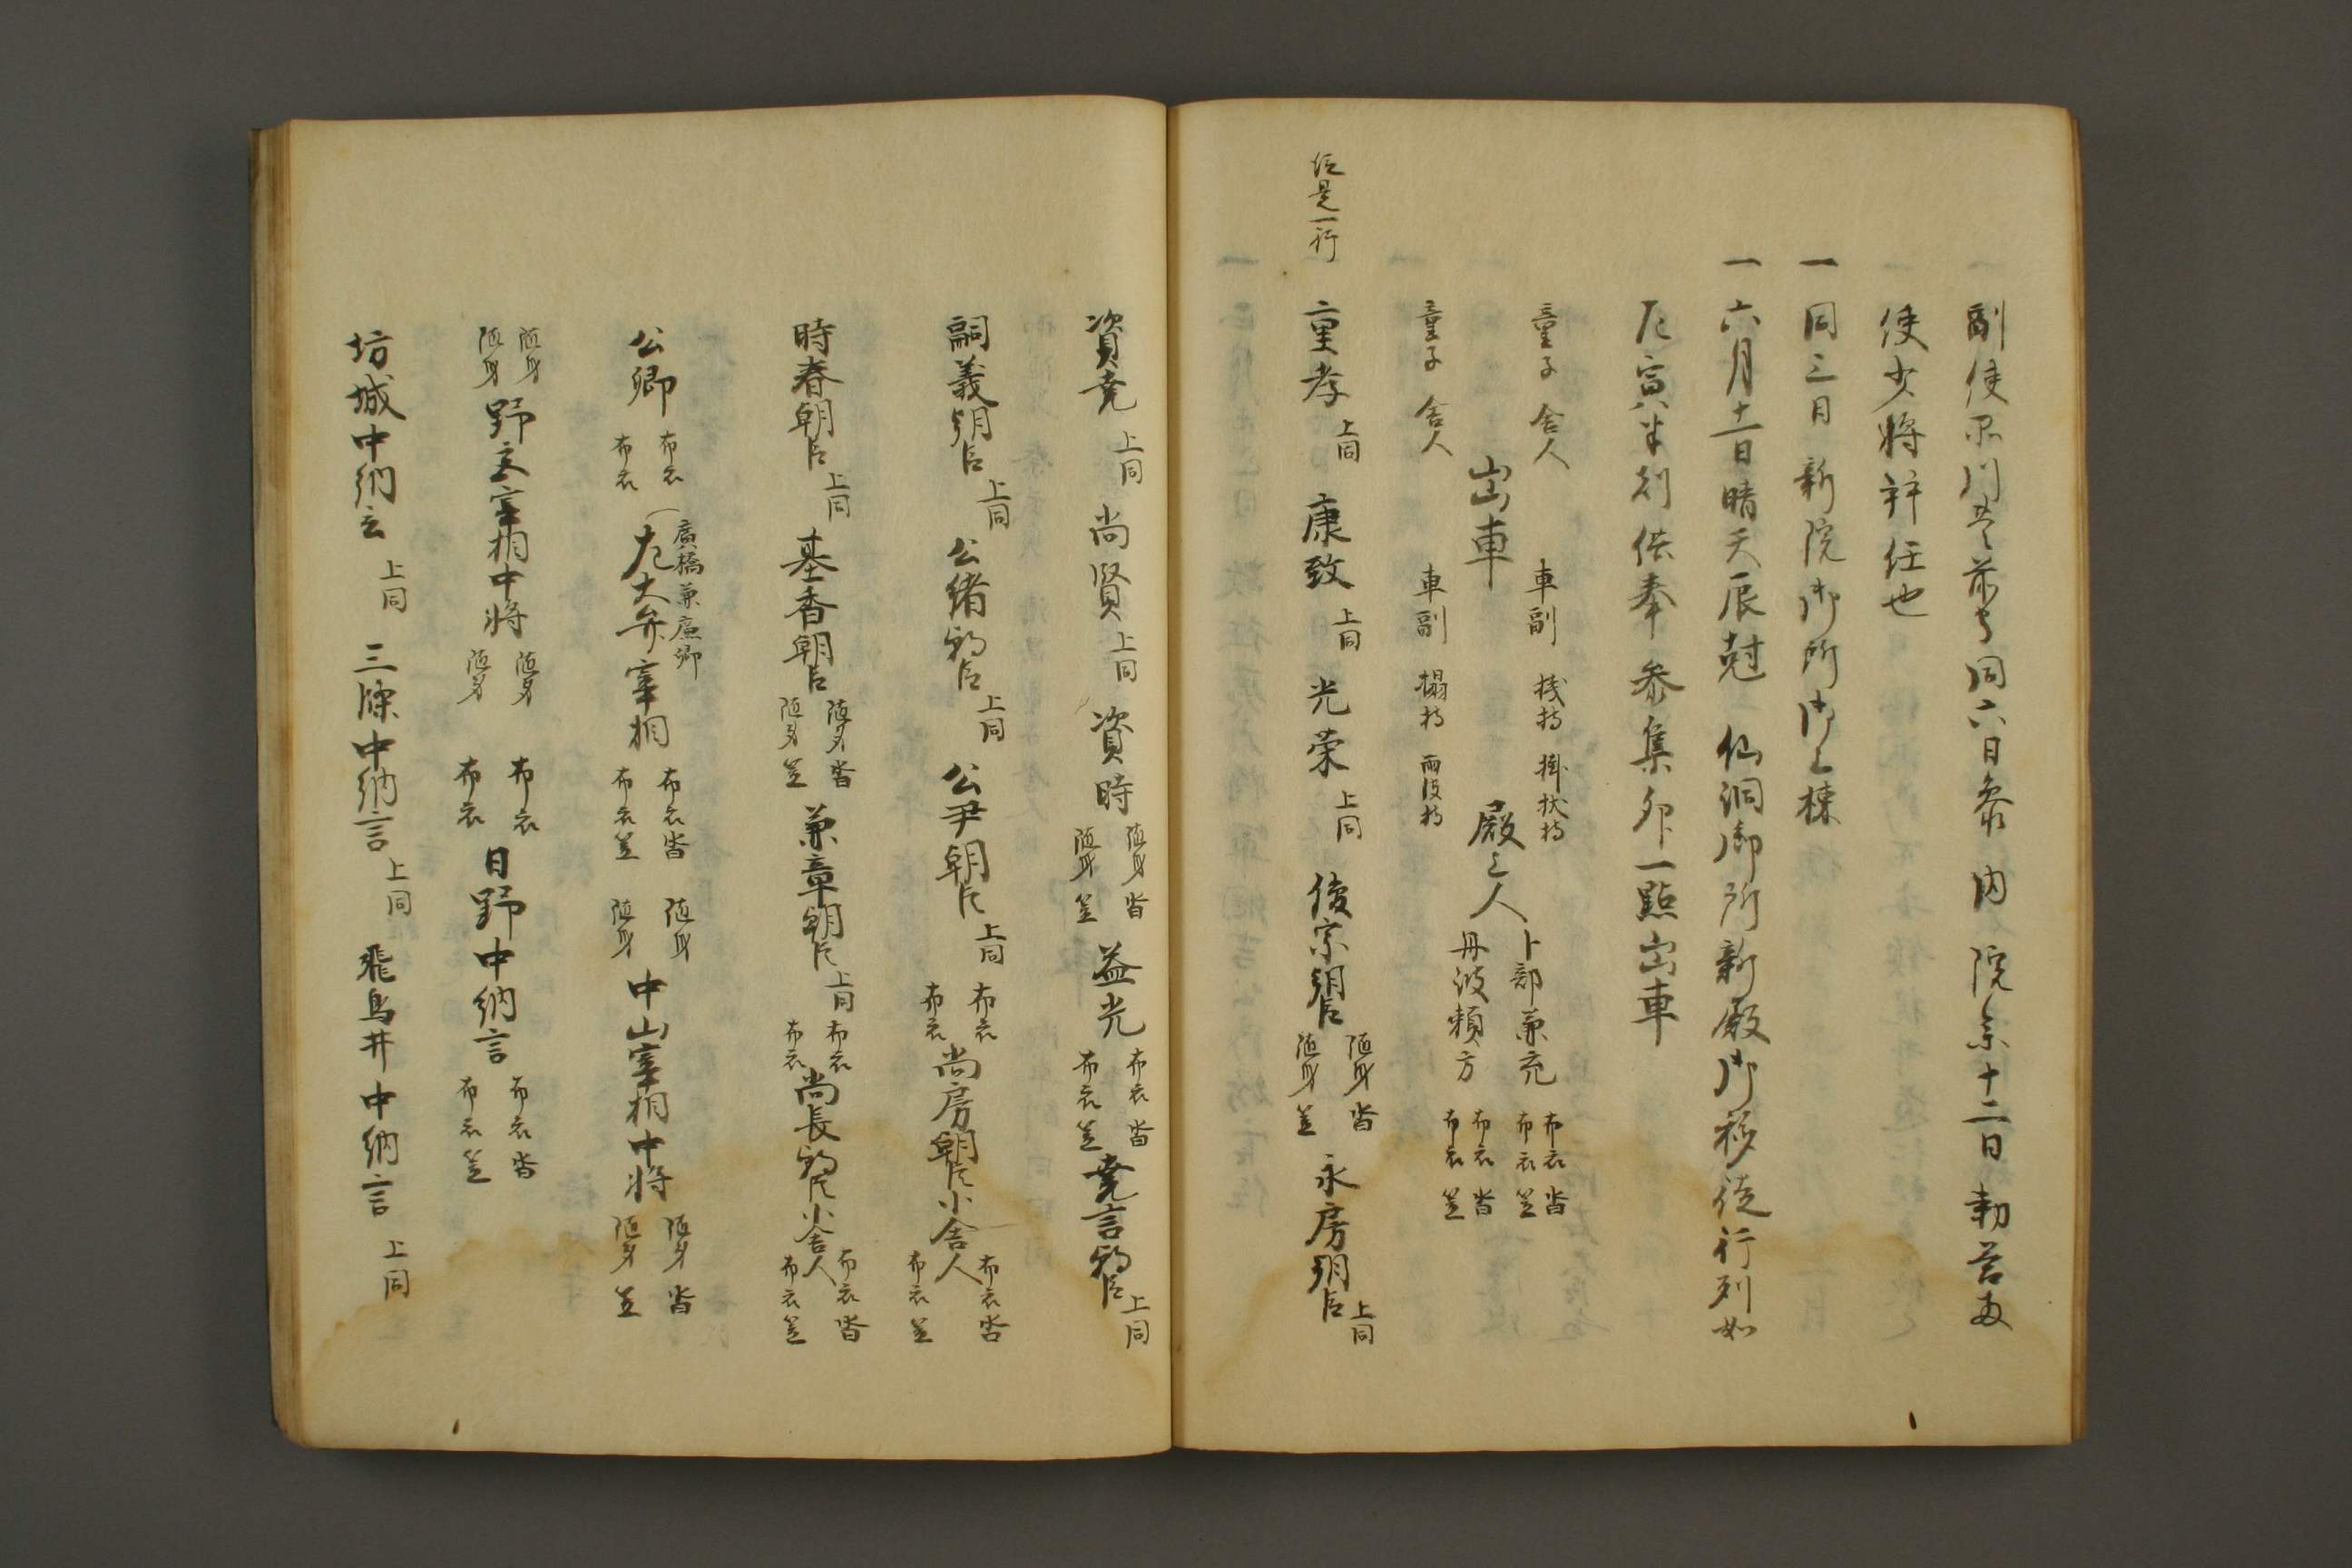 副使品川豊前守同六日参内院参十二日勅答両
使少将拝任也
一同三日新院御所御上棟
一六月十一日晴天辰尅仙洞御所新殿御移徙行列如
左寅半刻供奉参集卯一點出車
童子 舎人 車副 掛杖持
出車 殿上人 卜部兼充 布衣沓 布衣笠
童子 舎人 車副 榻持 雨皮持
丹波頼方 布衣沓 布衣笠
従是一行
重孝 上同 康致 上同 光栄 上同 俊宗朝臣 随身沓 随身笠 永房朝臣 上同
資堯 上同 尚賢 上同 資時 随身沓 随身笠 益光 布衣沓 布衣笠 堯言朝臣 上同
嗣義朝臣 上同 公緒朝臣 上同 公尹朝臣 上同 布衣 布衣 尚房朝臣 小舎人 布衣沓 布衣笠
時春朝臣 上同 基香朝臣 随身沓 随身笠 兼章朝臣 上同 布衣 布衣 尚長朝臣 小舎人 布衣沓 布衣笠
公卿 布衣 布衣 左大弁宰相 廣橋兼廉卿 布衣沓 布衣笠 随身 随身 中山宰相中将 随身沓 随身笠
随身 随身 野宮宰相中将 随身 随身 布衣 布衣 日野中納言 布衣沓 布衣笠
坊城中納言 上同 三條中納言 上同 飛鳥井中納言 上同